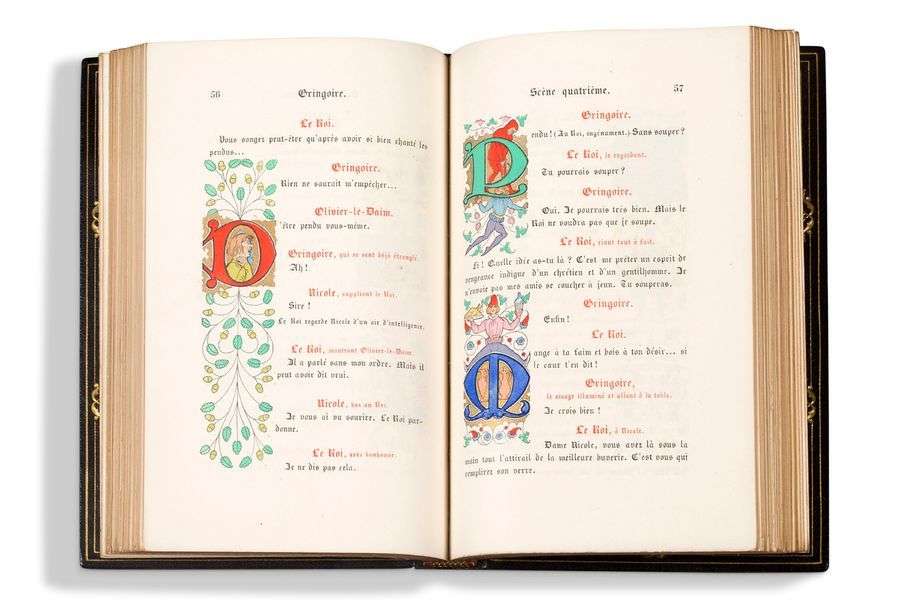 56
Gringoire.
Le Roi.
Vous songez peut-être qu'après avoir si bien chanté les
pendus...
Gringoire.
Rien ne saurait m'empêcher...
Olivier-le-Daim.
D'être pendu vous-même.
Gringoire, qui se sent déjà étranglé.
Ah!
Nicole, suppliant le Roi.
Sire!
Le Roi regarde Nicole d'un air d'intelligence.
Le Roi, montrant Olivier-le-Daim.
Il a parlé sans mon ordre. Mais il
peut avoir dit vrai.
Nicole, bas au Roi.
Je vous ai vu sourire. Le Roi par-
donne.
Le Roi, avec bonhomie.
Je ne dis pas cela.
Scène quatrième.
57
Gringoire.
Pendu! (Au Roi, ingénument.) Sans souper?
Le Roi, le regardant.
Tu pourrais souper?
Gringoire.
Oui. Je pourrais très bien. Mais le
Roi ne voudra pas que je soupe.
Le Roi, riant tout à fait.
Fi! Quelle idée as-tu là? C'est me prêter un esprit de
vengeance indigne d'un chrétien et d'un gentilhomme. Je
n'envoie pas mes amis se coucher à jeun. Tu souperas.
Gringoire.
Enfin!
Le Roi.
Mange à ta faim et bois à ton désir... si
le cœur t'en dit!
Gringoire,
le visage illuminé et allant à la table.
Je crois bien!
Le Roi, à Nicole.
Dame Nicole, vous avez là sous la
main tout l'attirail de la meilleure buverie. C'est vous qui
remplirez son verre.